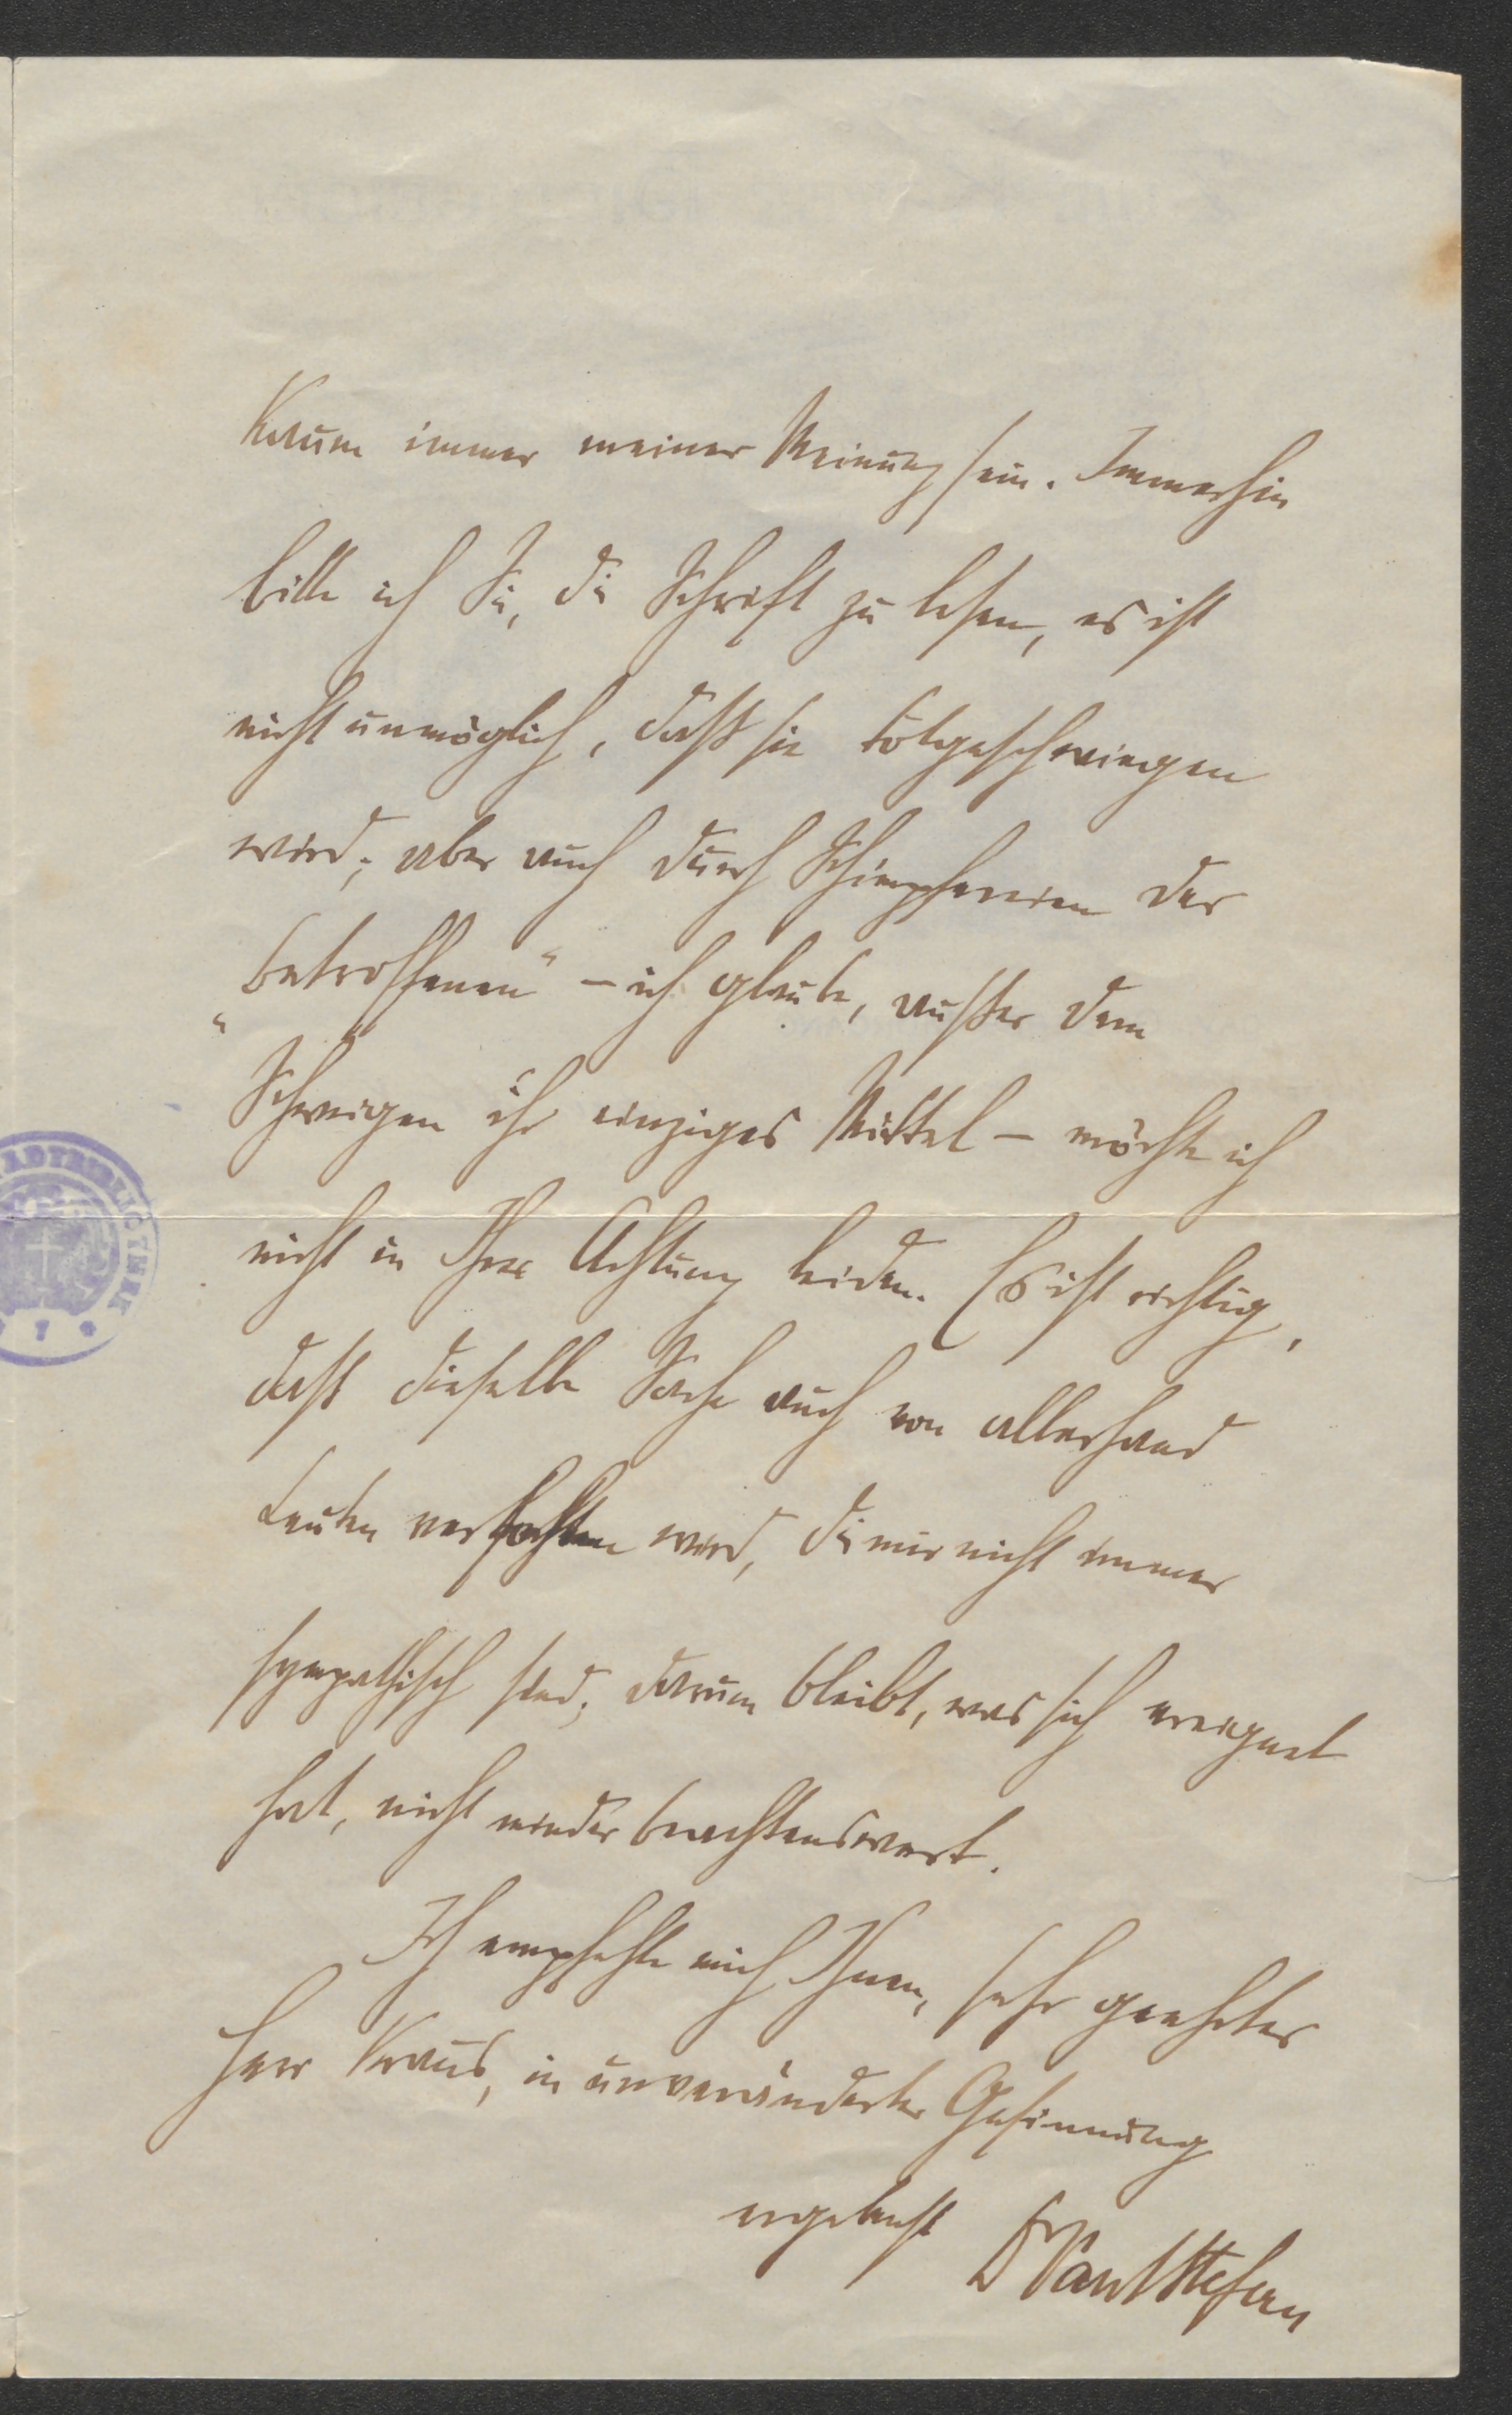 kaum immer meiner Meinung sein. Immerhin
bitte ich Sie, die Schrift zu lesen, es ist
nicht unmöglich, dass sie totgeschwiegen
wird; aber auch durch Schimpfereien der
„Betroffenen“ – ich glaube, ausser dem
Schweigen ihr einziges Mittel – möchte ich
nicht in Ihrer Achtung leiden. Es ist richtig,
dass dieselbe Sache auch von allerhand
Leuten verfochten wird, die mir nicht immer
sympathisch sind; darum bleibt, was sich ereignet
hat, nicht minder beachtenswert.
Ich empfehle mich Ihnen, sehr geehrter
Herr Kraus, in unveränderter Gesinnung
ergebenst Dr Paul Stefan